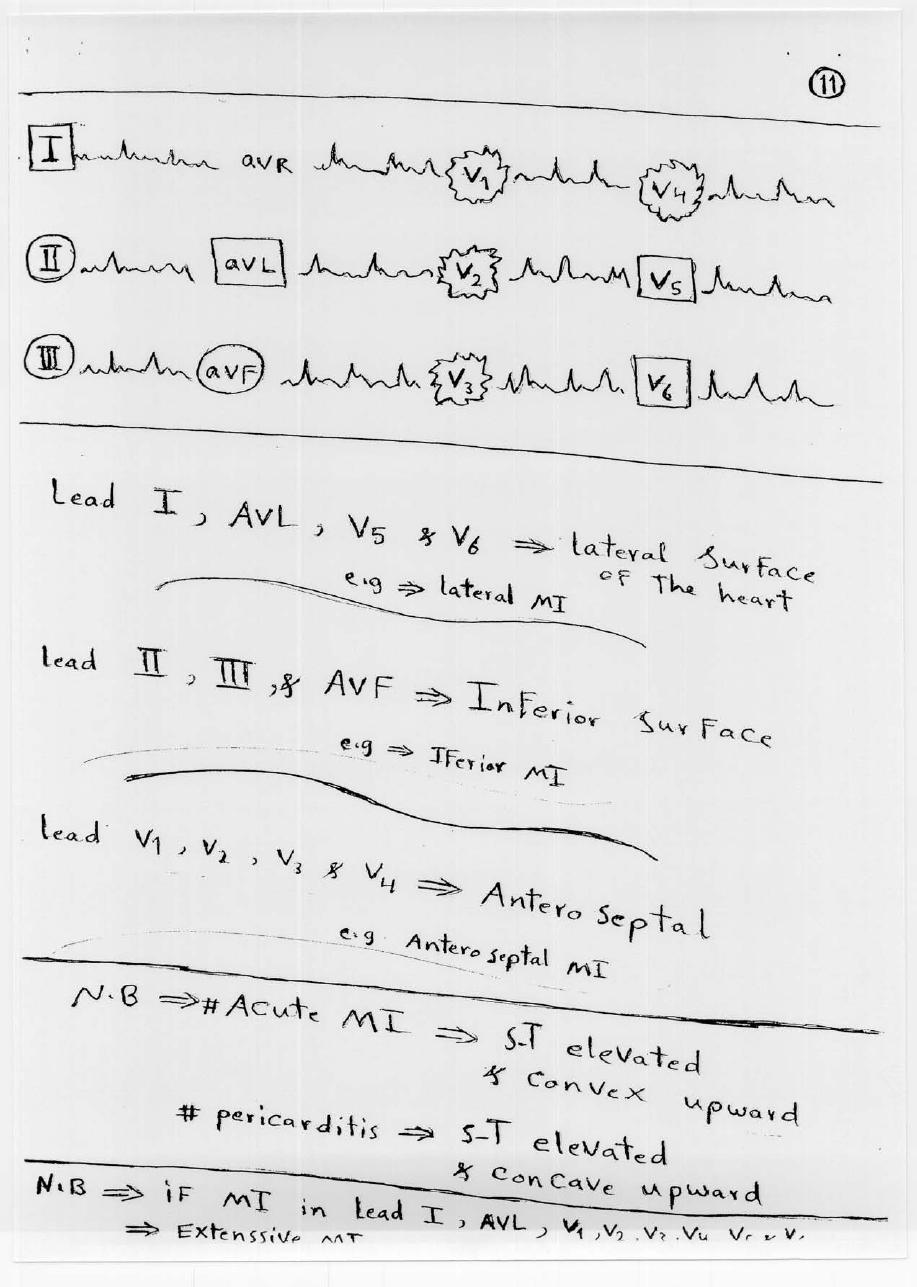 11
I aVR V1 V4
II aVL V2 V5
III aVF V3 V6
Lead I, AVL, V5 & V6 ⇒ lateral surface
of the heart
e.g ⇒ lateral MI
lead II, III, & AVF ⇒ Inferior surface
e.g ⇒ IFerior MI
lead V1, V2, V3 & V4 ⇒ Antero septal
e.g Antero septal MI
N.B ⇒ # Acute MI ⇒ S-T elevated
& convex upward
# pericarditis ⇒ S-T elevated
& concave upward
N.B ⇒ if MI in lead I, AVL, V1, V2, V3, V4
⇒ Extenssive MI